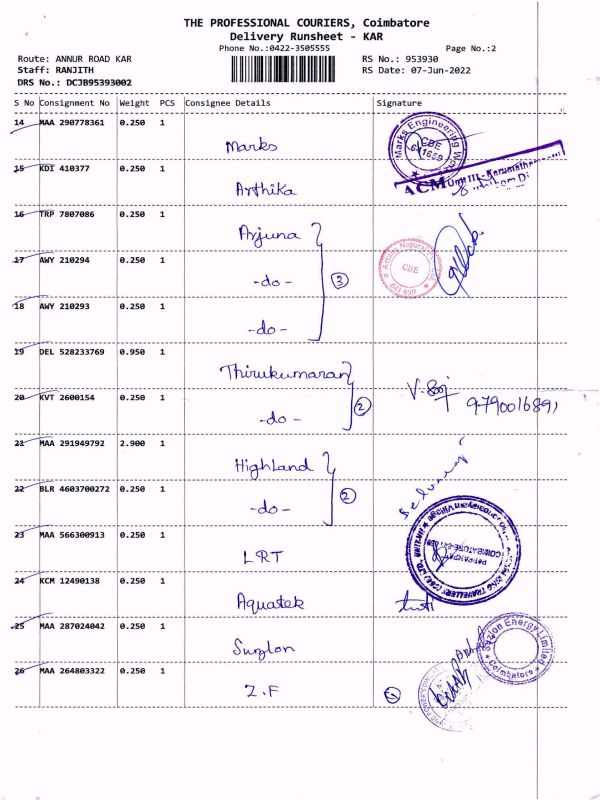 THE PROFESSIONAL COURIERS, Coimbatore
Delivery Runsheet - KAR
Phone No.:0422-3505555
Page No.:2
Route: ANNUR ROAD KAR
RS No.: 953930
Staff: RANJITH
RS Date: 07-Jun-2022
DRS No.: DCJB95393002
S No Consignment No Weight PCS Consignee Details Signature
14 MAA 290778361 0.250 1
Marks
Marks Engineering Works
CBE
641659
15 KDI 410377 0.250 1
Arthika
ACM Unit III
16 TRP 7807086 0.250 1
Arjuna
17 AWY 210294 0.250 1
-do- 3
CBE
641 659
18 AWY 210293 0.250 1
-do-
19 DEL 528233769 0.950 1
Thirukumaran
20 KVT 2600154 0.250 1
-do- 2
21 MAA 291949792 2.900 1
Highland
22 BLR 4603700272 0.250 1
-do- 2
23 MAA 566300913 0.250 1
LRT
24 KCM 12490138 0.250 1
Aquatek
25 MAA 287024042 0.250 1
Suzlon
Suzlon Energy Limited
Coimbatore
26 MAA 264803322 0.250 1
Z.F